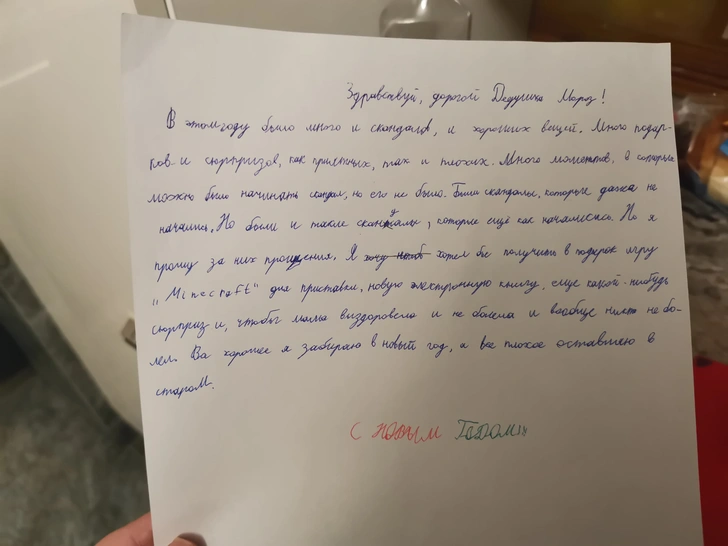 Здравствуй, дорогой Дедушка Мороз!
В этом году было много и скандалов, и хороших вещей. Много подар-
ков и сюрпризов, как приятных, так и плохих. Много моментов, в которых
можно было начинать скандал, но его не было. Были скандалы, которые даже не
начались. Но были и такие скандалы, которые ещё как начались. Но я
прошу за них прощения. Я хочу хотел бы получить в подарок игру
"Minecraft" для приставки, новую электронную книгу, еще какой-нибудь
сюрприз и, чтобы мама выздоровела и не болела и вообще никто не бо-
лел. Все хорошее я забираю в новый год, а все плохое оставляю в
старом.
С НОВЫМ ГОДОМ!!!